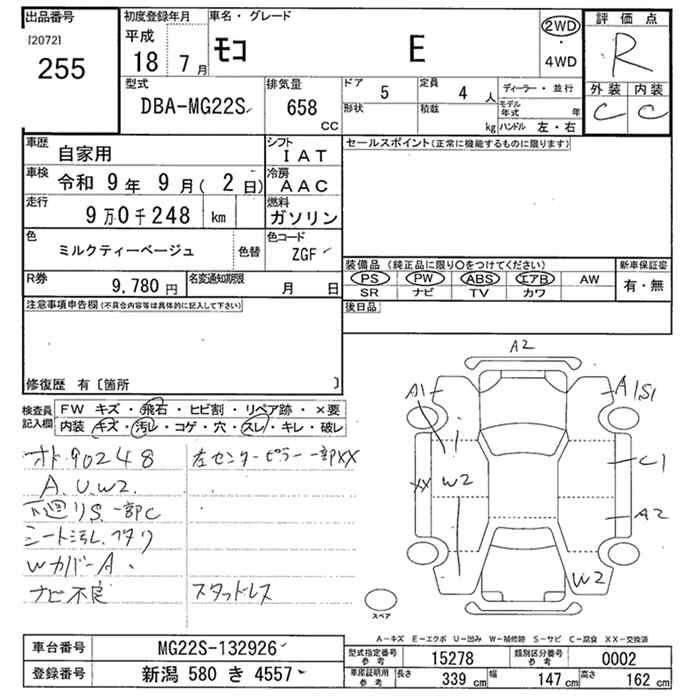 出品番号
[2072]
255
初度登録年月
平成
18 7月
車名・グレード
モコ E
2WD
・
4WD
評価点
R
外装 内装
C C
型式
DBA-MG22S
排気量
658
CC
ドア 5
形状
定員 4 人
積載 kg
ディーラー・並行
モデル年式 年
ハンドル 左・右
車歴 自家用
シフト IAT
車検 令和 9年 9月(2日)
冷房 AAC
走行 9万0千248 km
燃料 ガソリン
色 ミルクティーベージュ 色替
色コード ZGF
R券 9,780円
名変通知期限 月 日
セールスポイント(正常に機能するものに限ります)
装備品(純正品に限り○をつけてください) 新車保証書
PS PW ABS エアB AW 有・無
SR ナビ TV カワ
後日品
注意事項申告欄(不具合内容等は具体的に記入して下さい)
修復歴 有〔箇所 〕
検査員記入欄
FW キズ・飛石・ヒビ割・リペア跡・×要
内装 キズ・汚レ・コゲ・穴・スレ・キレ・破レ
オド90248
左センターピラー一部XX
A.U.W2.
下廻りS.一部C
シート汚レ.
WカバーA.
ナビ不良
スタッドレス
A2
A1
A1S1
W2
XX
C1
A2
W2
スペア
A-キズ E-エクボ U-凹み W-補修跡 S-サビ C-腐食 XX-交換済
車台番号 MG22S-132926
登録番号 新潟 580 き 4557
型式指定番号 参考 15278
類別区分番号 参考 0002
車庫証明用 参考 長さ 339 cm 幅 147 cm 高さ 162 cm